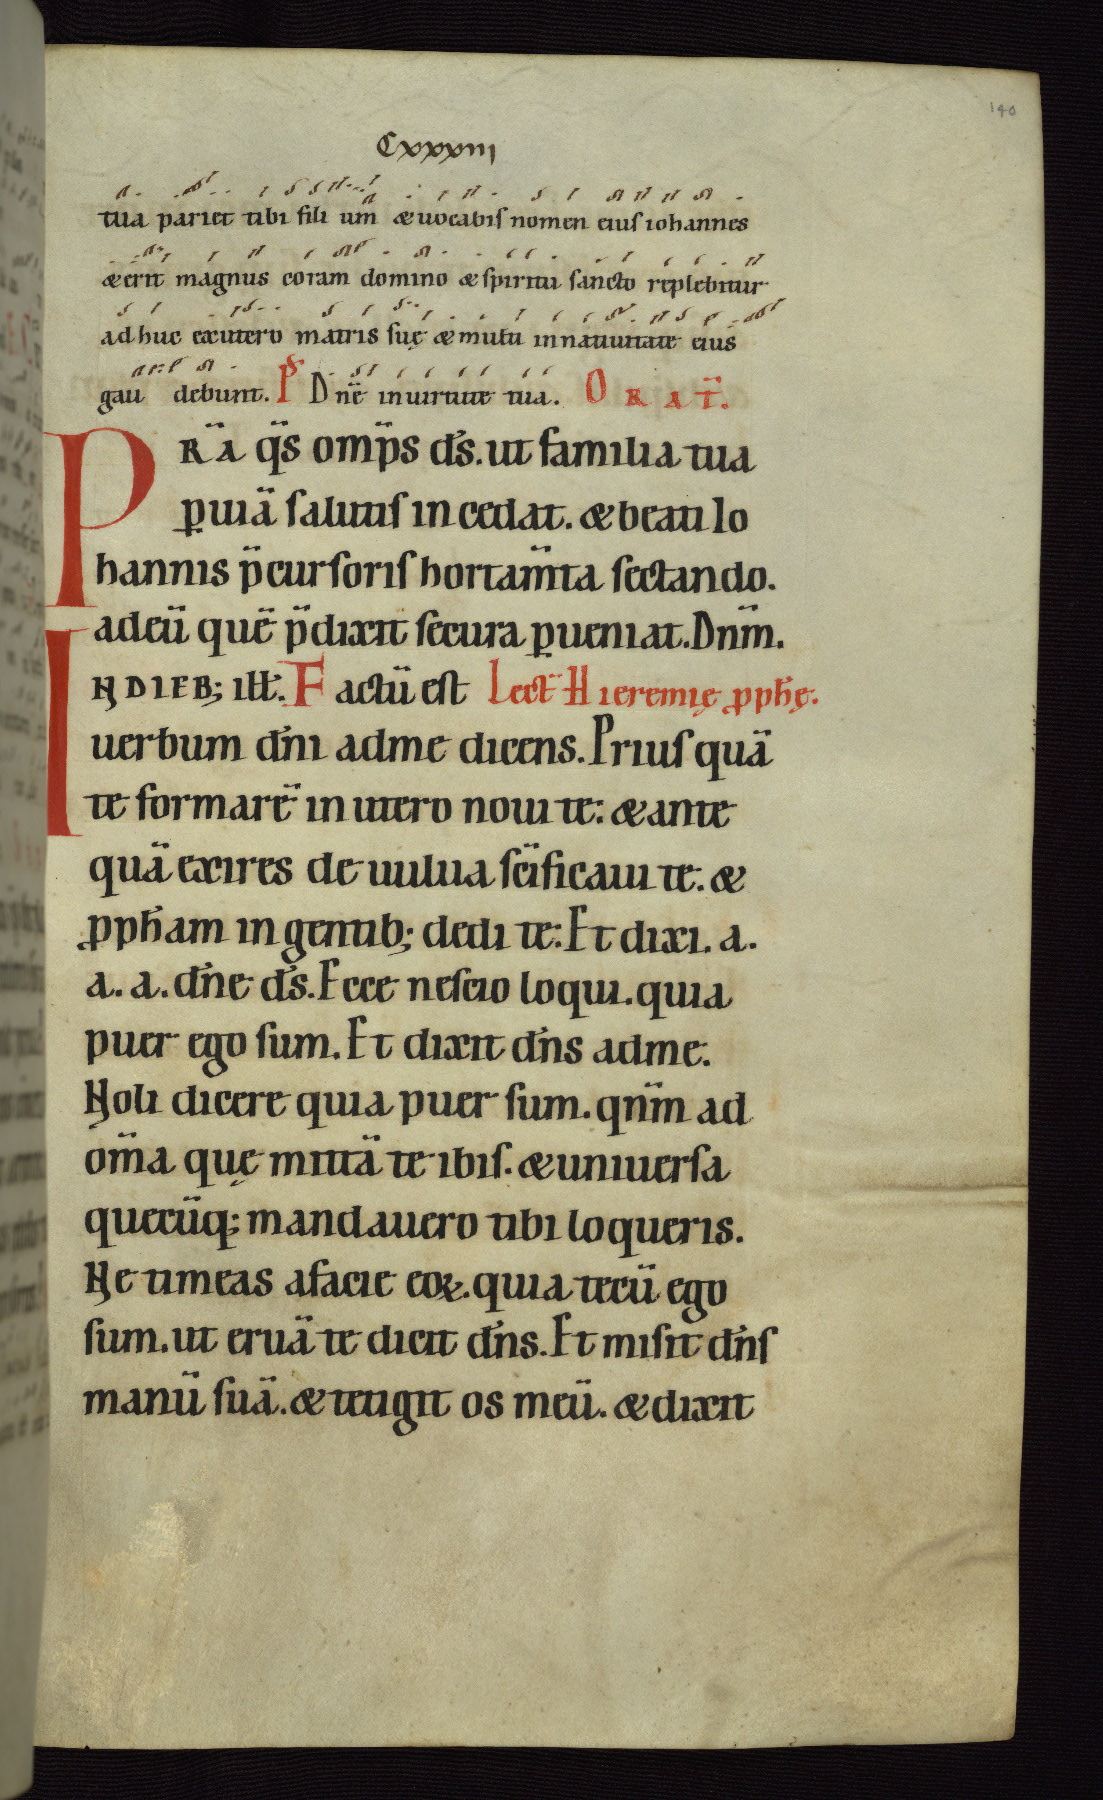 140
Cxxxiii
tua pariet tibi fili um̄ & uocabis nomen eius iohannes
& erit magnus coram domino & spiritu sancto replebitur
adhuc exutero matris suę & multi innatiuitate eius
gau debunt. Ps Dn̄e inuirtute tua. ORAT̄.
PRĀ A q̄s omp̄s d̄s. ut familia tua
ꝑuiā salutis incedat. & beati Io
hannis p̄cursoris hortam̄ta sectando.
adeū quē p̄dixit secura ꝑueniat. Dn̄m.
IN DIEB; ill̄. Factū est Lect̄ Hieremię ꝓph̄ę.
uerbum dn̄i adme dicens. Prius quā
te formarē in utero noui te: & ante
quā exires de uulua sc̄ificaui te. &
ꝓph̄am in gentib; dedi te: Et dixi. a.
a. a. dn̄e d̄s. Ecce nescio loqui. quia
puer ego sum. Et dixit dn̄s adme.
Noli dicere quia puer sum. qn̄m ad
om̄a quę mittā te ibis. & uniuersa
quecūq; mandauero tibi loqueris.
Ne timeas afacie eoꝝ. quia tecū ego
sum. ut eruā te dicit dn̄s. Et misit dn̄s
manū suā. & tetigit os meū. & dixit